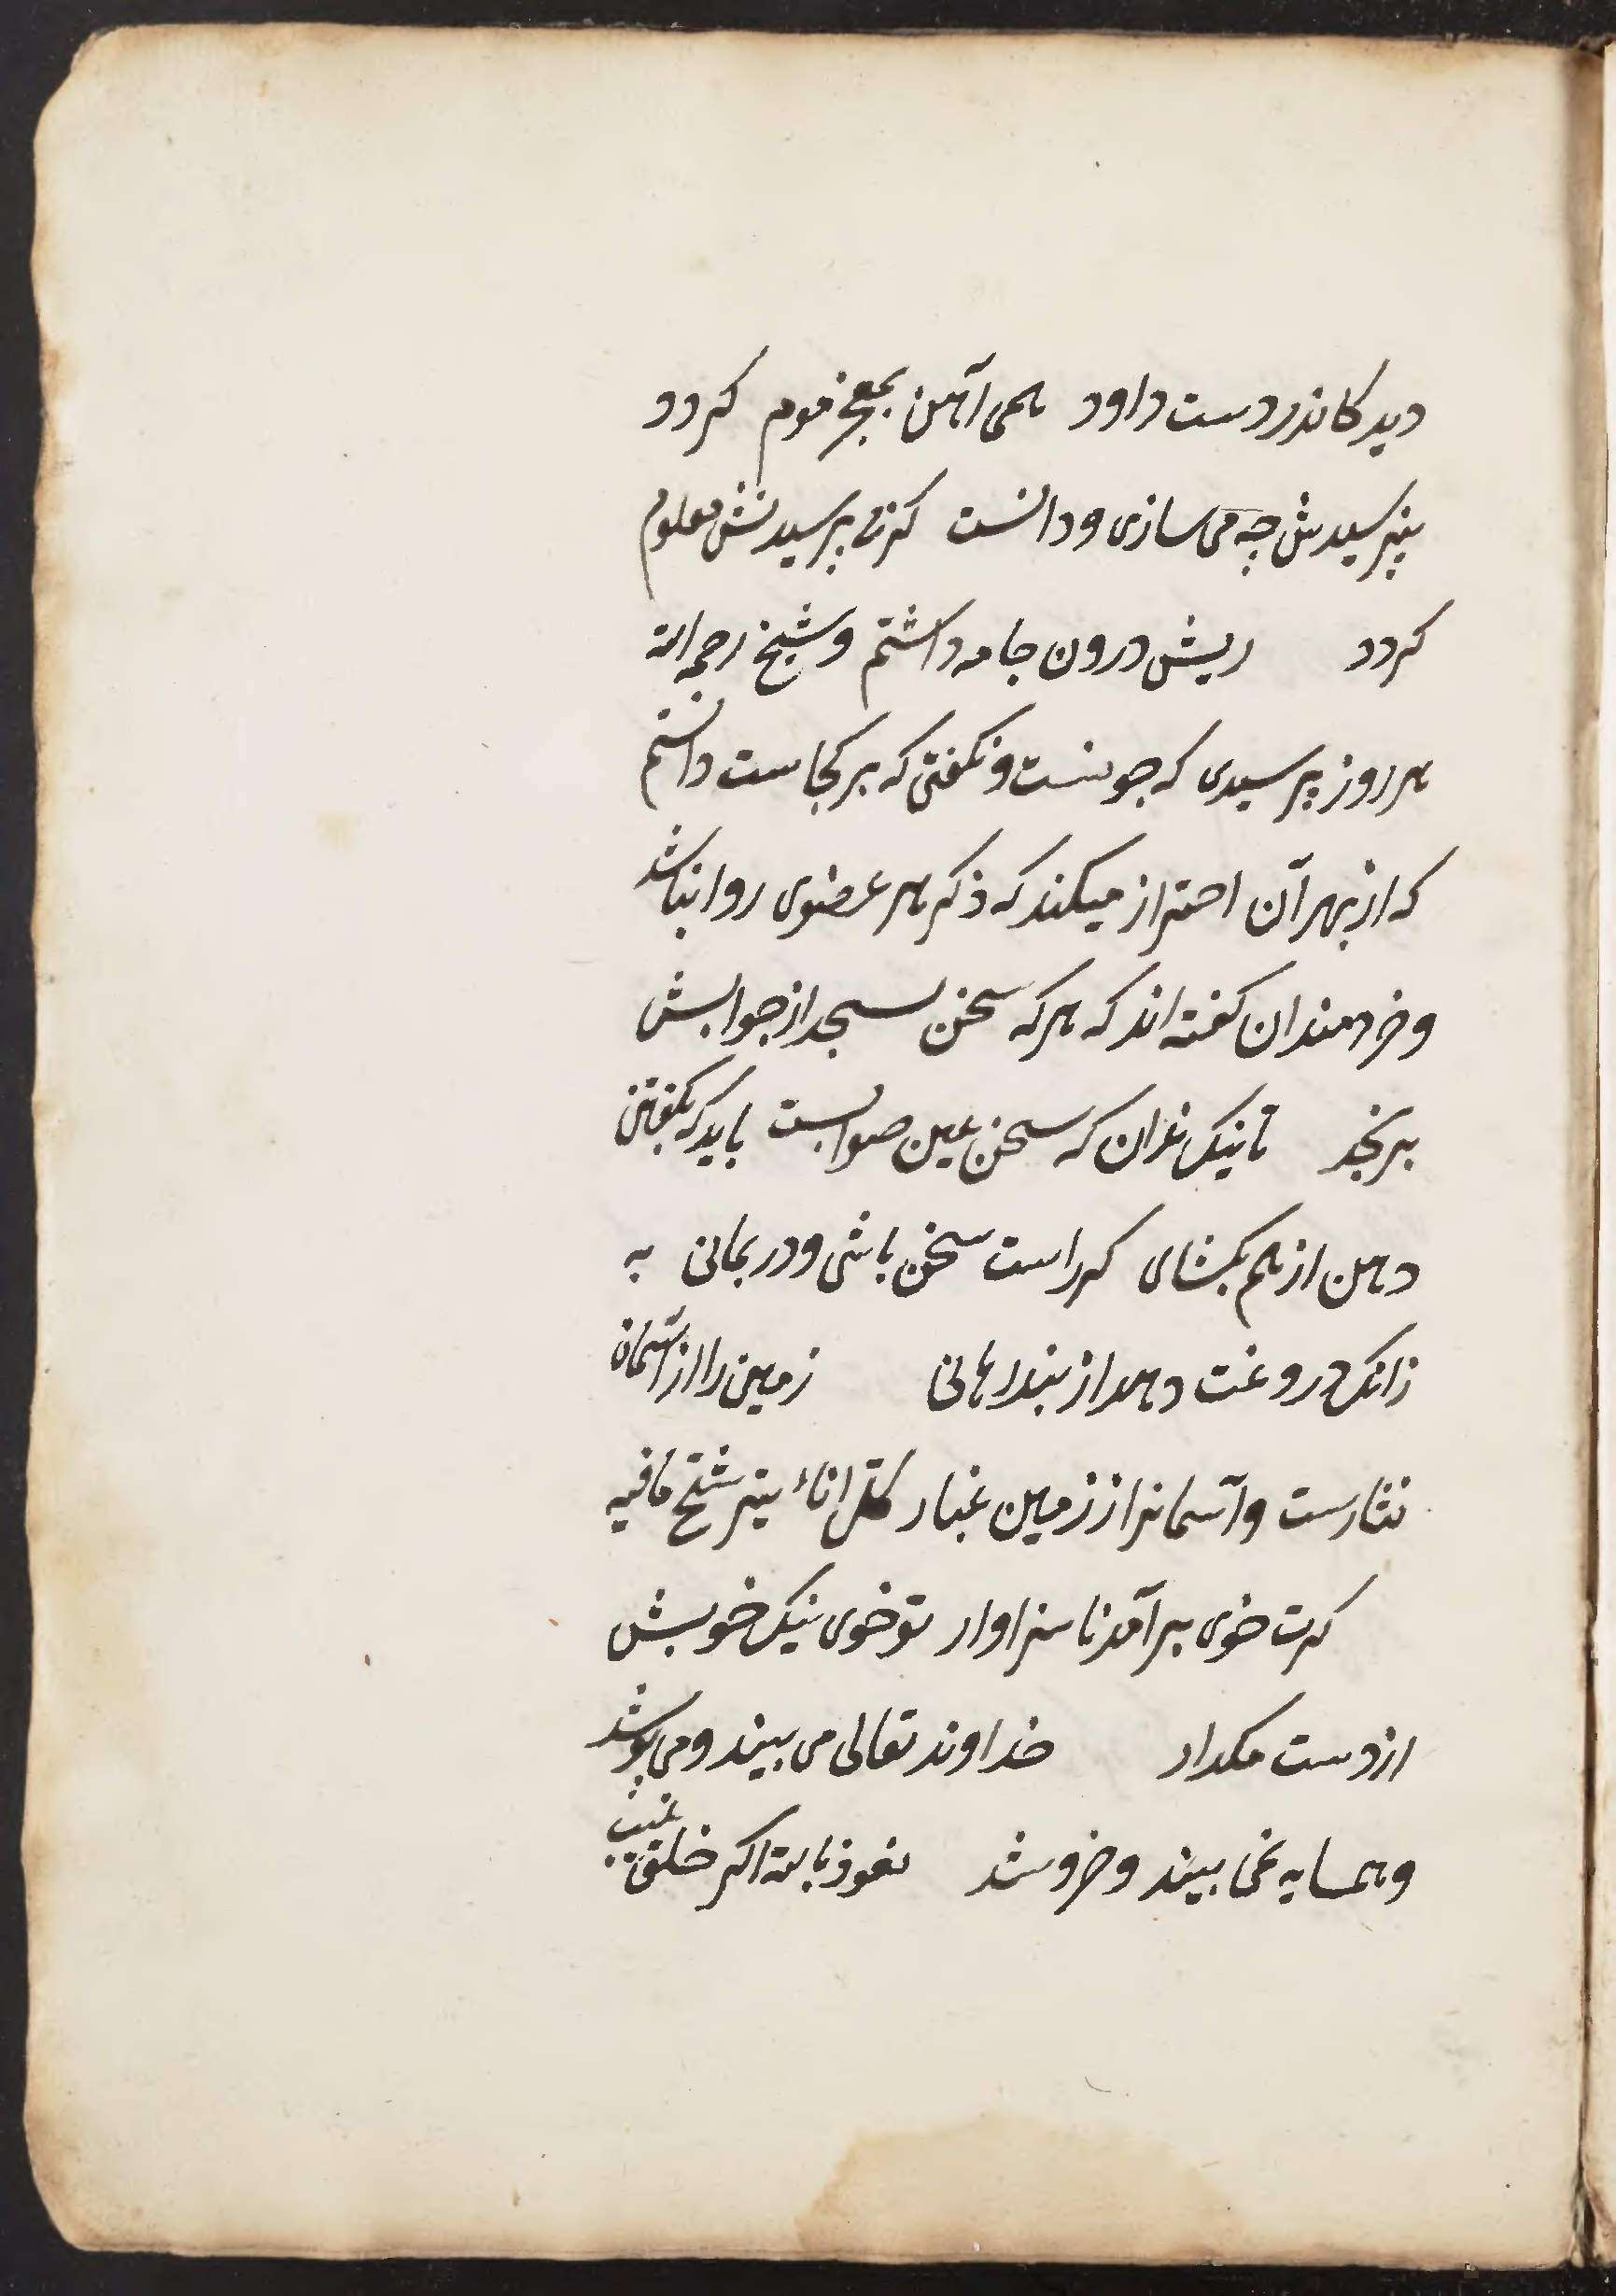 دید کاندر دست داود همی آهن بمعجز موم کردد
نپرسیدش چه می سازی و دانست که بی پرسیدنش معلوم
کردد ریشی درون جامه داشتم و شیخ رحمه الله
هر روز پرسیدی که چونست و نکفتی که بر کجاست دانستم
که از بهر آن احتراز میکند که ذکر هر عضوی روا نباشد
و خردمندان کفته اند که هرکه سخن نسنجد از جوابش
برنجد تا نیک ندانی که سخن عین صوابست باید که بکفتن
دهن از هم نکشای کر راست سخن باشی و در بند بمانی به
زانکه دروغت دهد از بند رهائی زمین را از آسمان
نثارست و آسمانرا از زمین غبار کل اناء یترشح مافیه
کرت خوی بر آمد ناسزاوار تو خوی نیک خویش
از دست مکذار خداوند تعالی می بیند و می پوشد
و همسایه نمی بیند و خروشد نعوذ بالله اکر خلق غیب